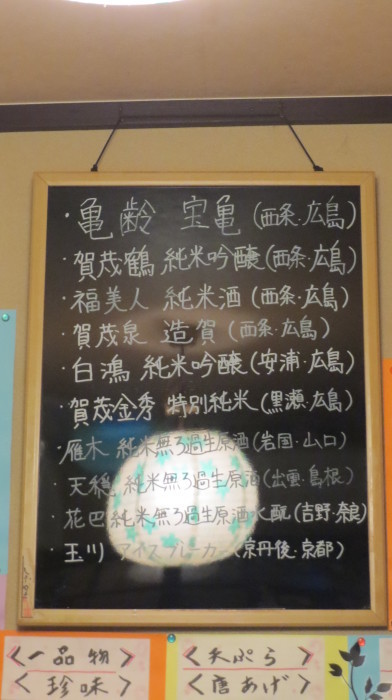 ・亀齢 宝亀 (西条・広島)
・賀茂鶴 純米吟醸 (西条・広島)
・福美人 純米酒 (西条・広島)
・賀茂泉 造賀 (西条・広島)
・白鴻 純米吟醸 (安浦・広島)
・賀茂金秀 特別純米 (黒瀬・広島)
・雁木 純米無ろ過生原酒 (岩国・山口)
・天穏 純米無ろ過生原酒 (出雲・島根)
・花巴 純米無ろ過生原酒 水酛 (吉野・奈良)
・玉川 アイスブレーカー (京丹後・京都)
<一品物>
<珍味>
<天ぷら>
<唐あげ>